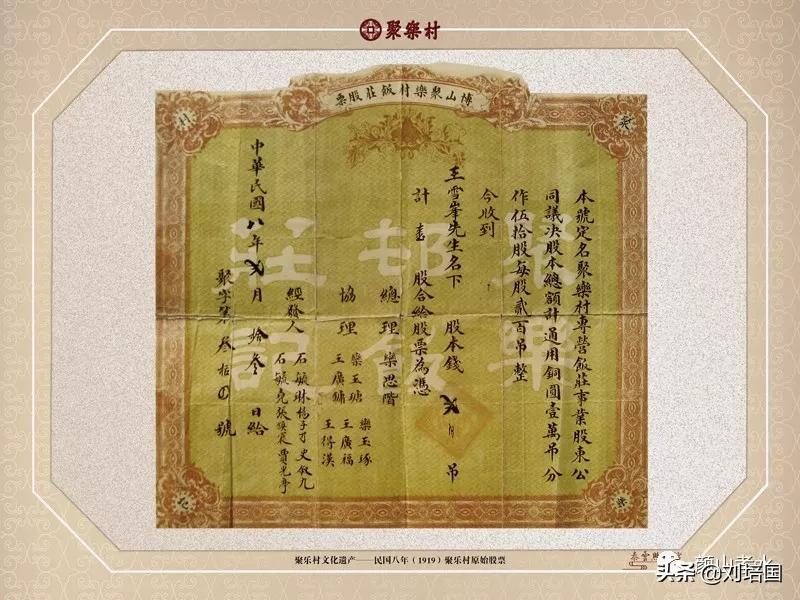 聚樂村
博山聚樂村飯莊股票
本號定名聚樂村專營飯莊事業股東公
同議決股本總額計通用銅圓壹萬吊分
作伍拾股每股貳百吊整
今收到
王雪峯先生名下 股本錢 吊
計 壹 股合給股票為憑
總理 欒思階
協理 欒玉瑭 欒玉琢
王廣鏞 王廣福
王得漢
經發人 石毓琳 楊子才 史叙九
石毓堯 張煥宸 賈光亭
中華民國八年貳月拾叁日給
聚字第叁拾 號
聚樂邨飯莊記
聚乐村文化遗产——民国八年（1919）聚乐村原始股票
头条 @刘培国